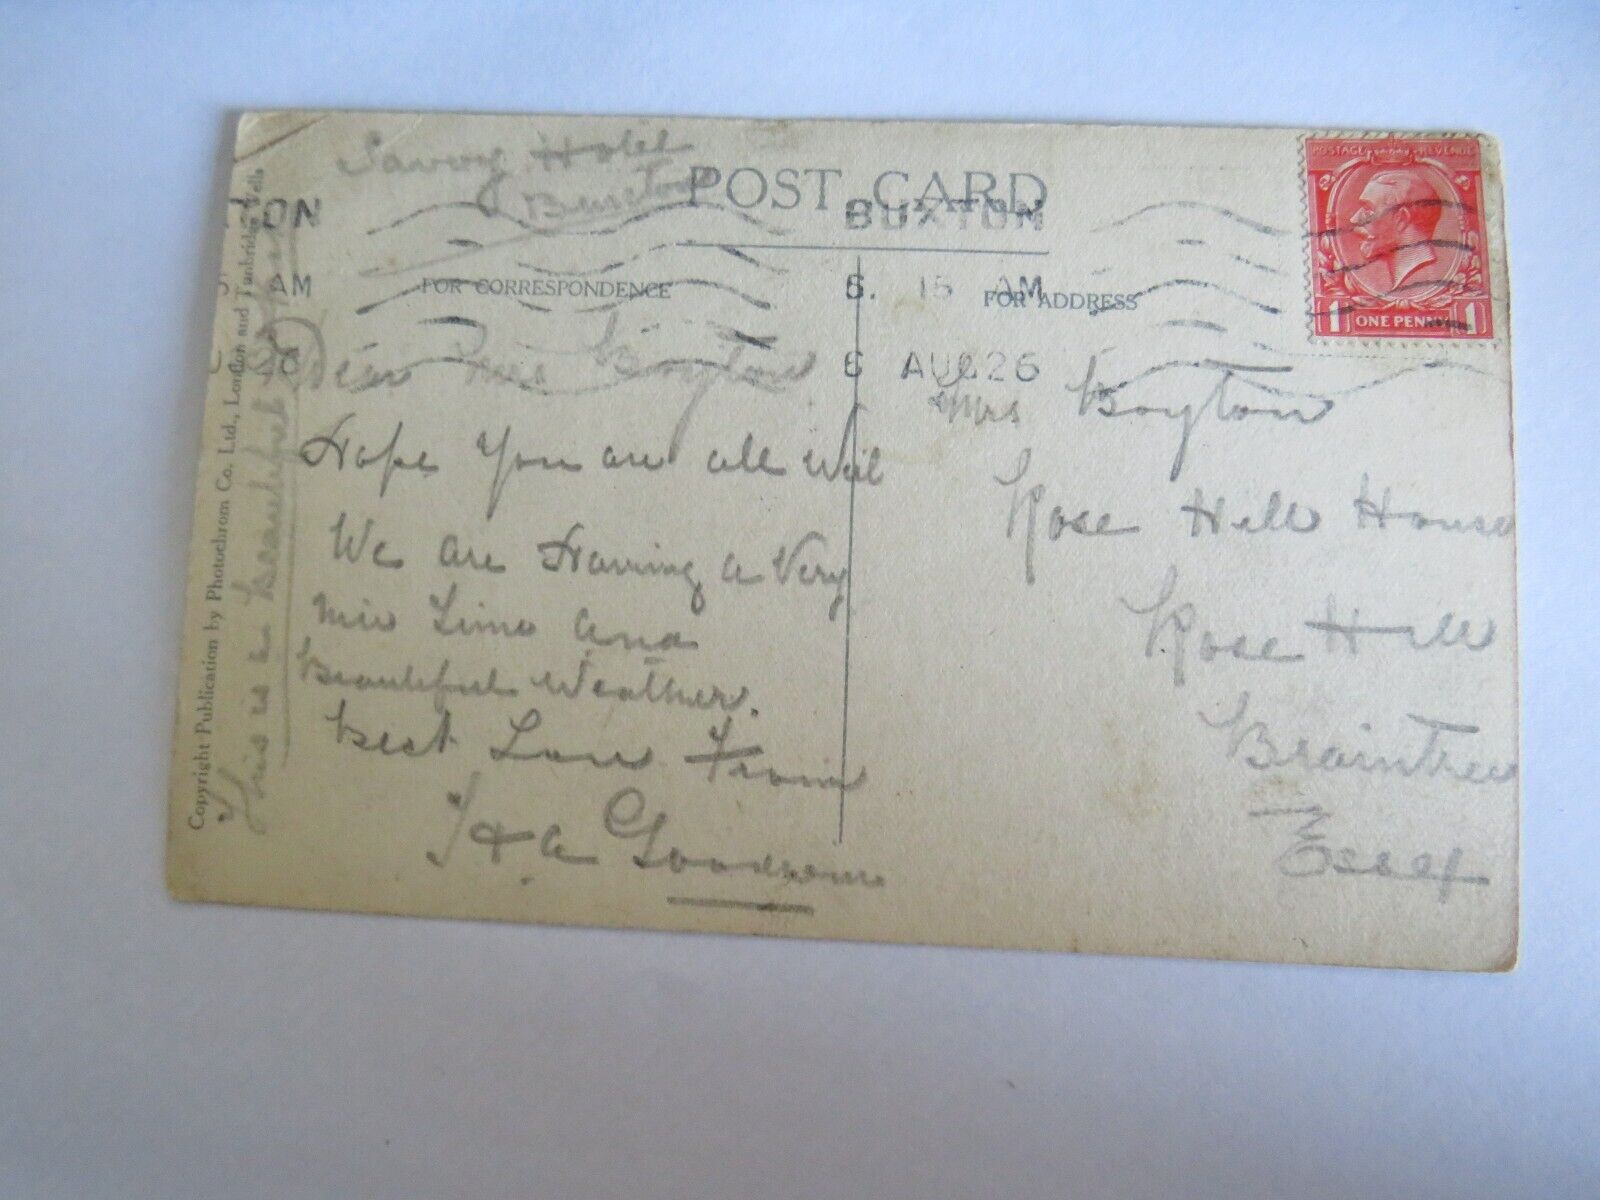 Savoy Hotel
Buxton
POST CARD
TON
BUXTON
AM
6. 15 AM
6 AUG 26
FOR CORRESPONDENCE
FOR ADDRESS
POSTAGE REVENUE
1 ONE PENNY 1
Dear Mrs Boyton
Hope You are all Well
We are Having a Very
nice Time and
Beautiful Weather.
Best Love From
& A Goodrem
This is a beautiful
Copyright Publication by Photochrom Co. Ltd., London and Tunbridge Wells
Mrs Boyton
Rose Hill House
Rose Hill
Braintree
Essex